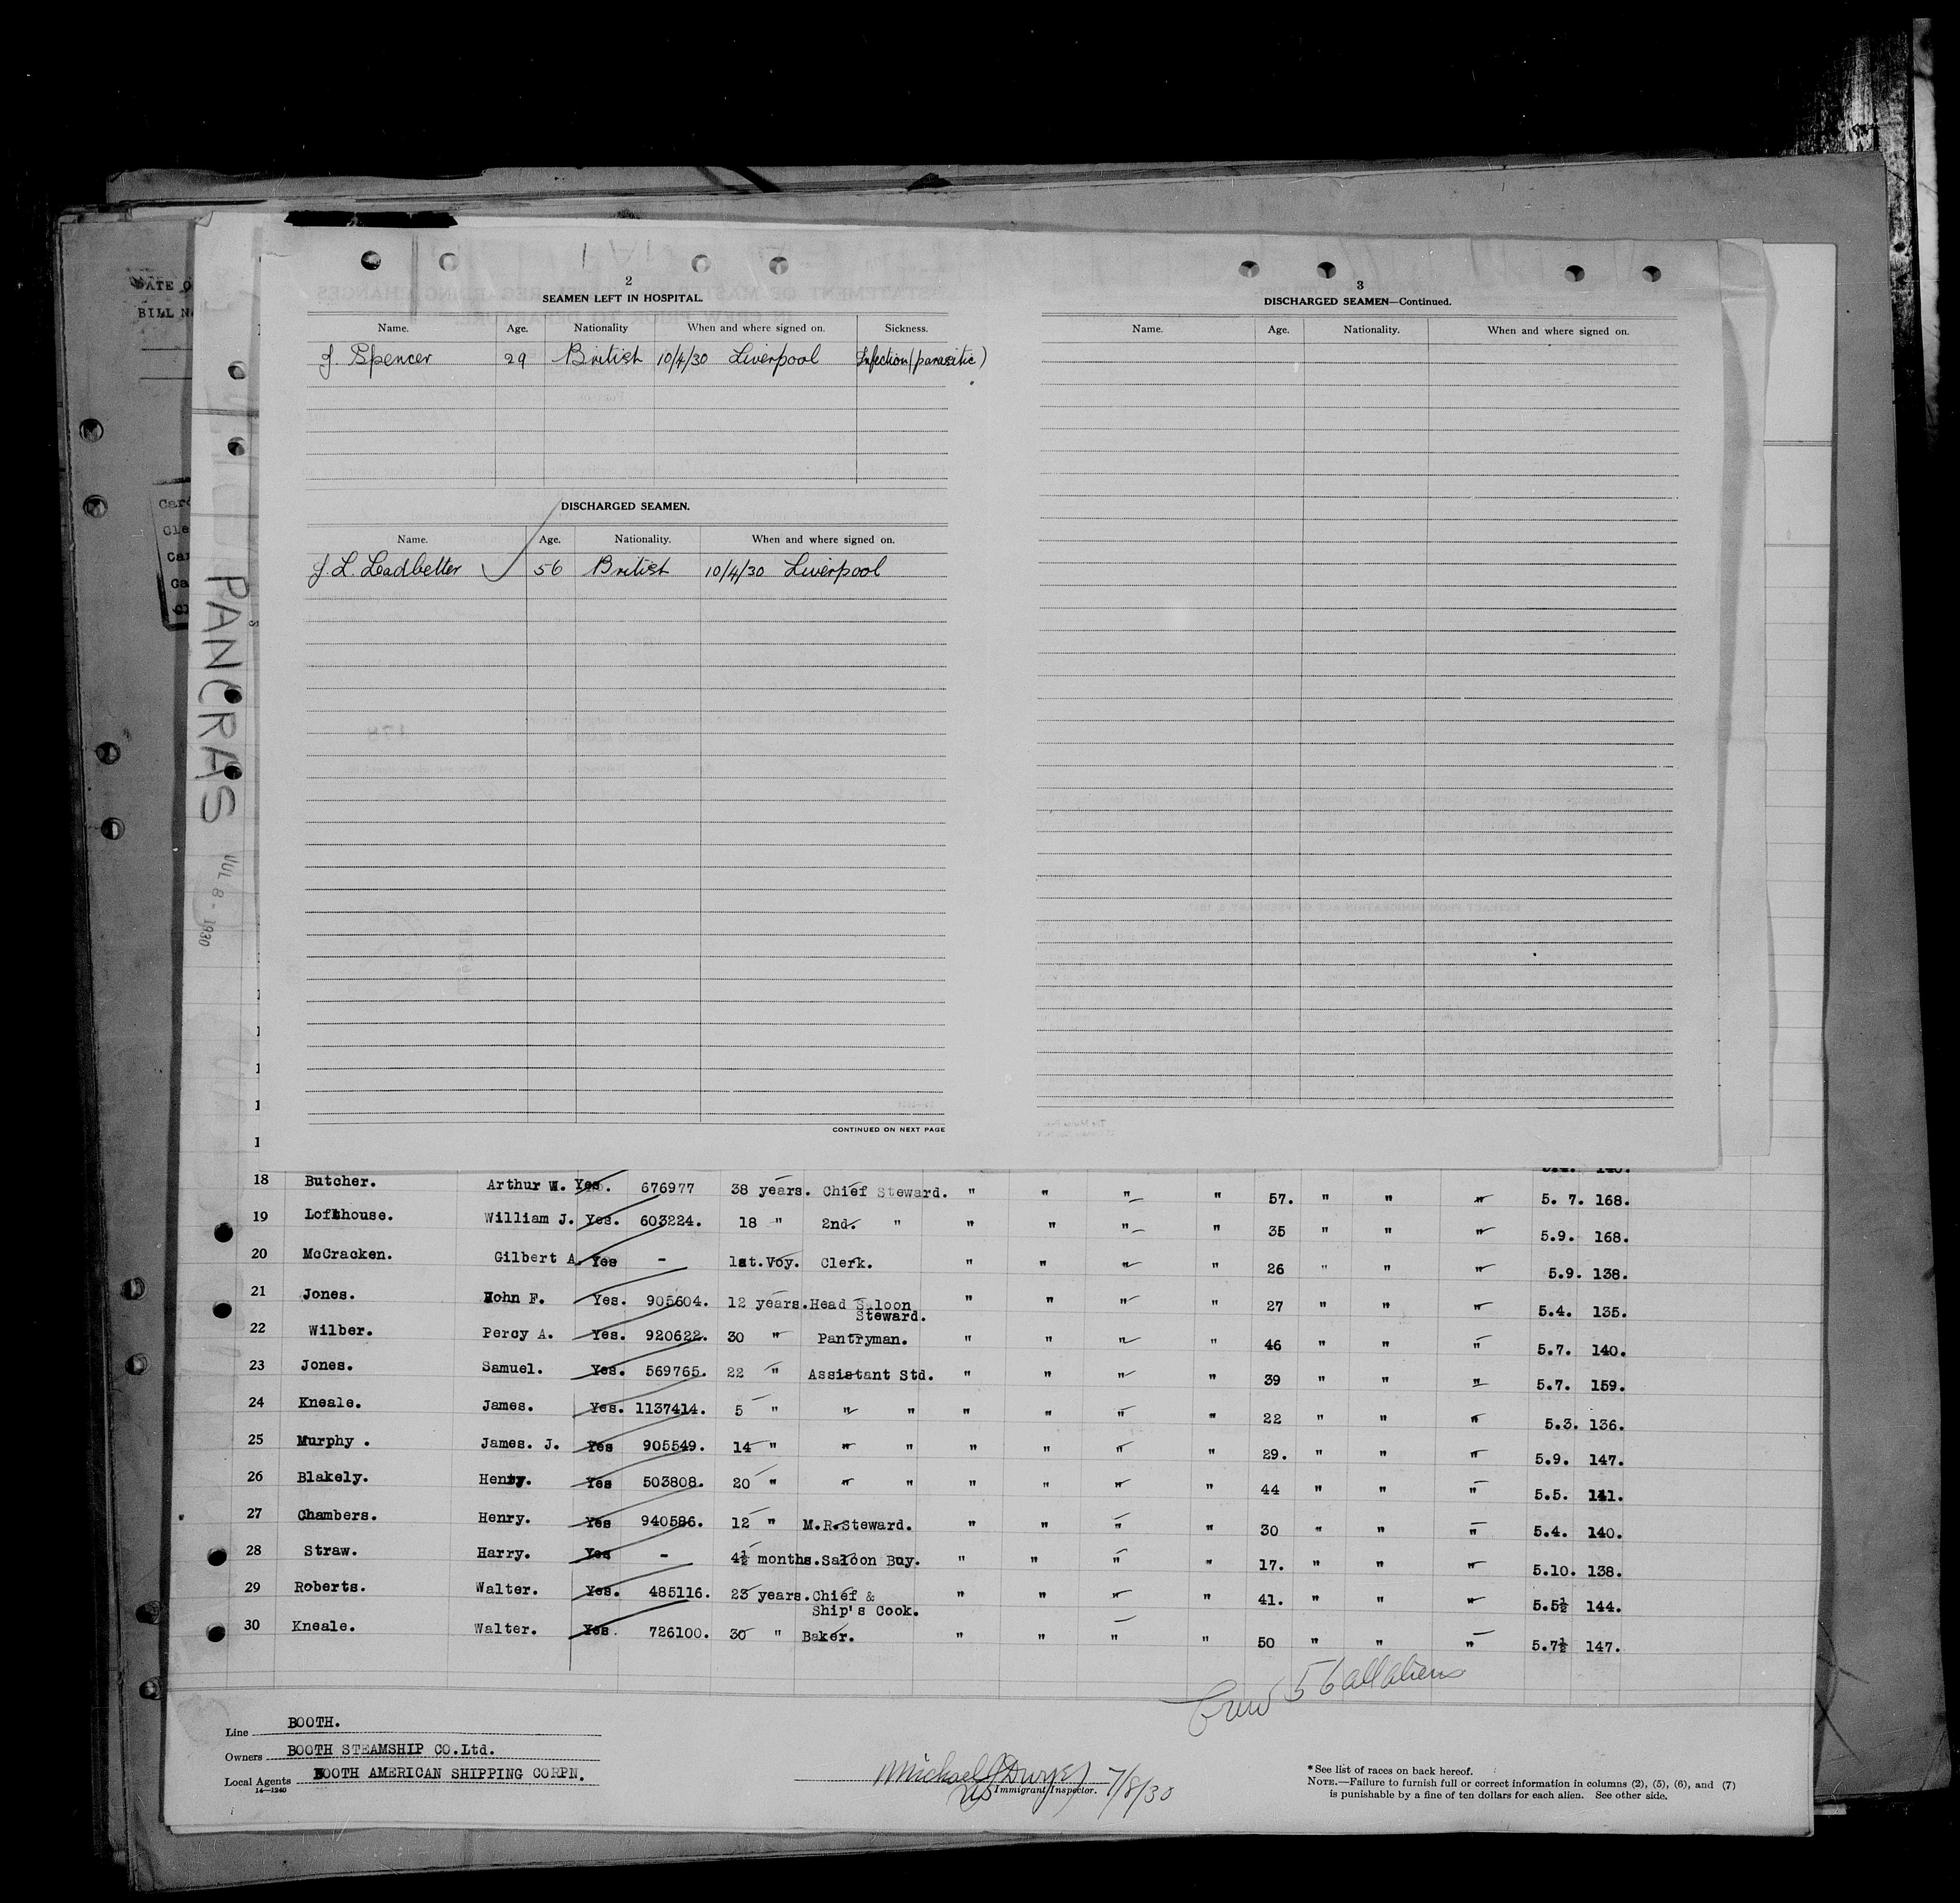 DATE O
BILL N
PANCRAS JUL 8 - 1930
2
SEAMEN LEFT IN HOSPITAL.
Name. Age. Nationality When and where signed on. Sickness.
J. Spencer 29 British 10/4/30 Liverpool Infection (parasitic)
DISCHARGED SEAMEN.
Name. Age. Nationality. When and where signed on.
J. L. Leadbetter 56 British 10/4/30 Liverpool
CONTINUED ON NEXT PAGE
3
DISCHARGED SEAMEN—Continued.
Name. Age. Nationality. When and where signed on.
18 Butcher. Arthur W. Yes. 676977 38 years. Chief Steward. " " " " 57. " " " 5. 7. 168.
19 Lofthouse. William J. Yes. 603224. 18 " 2nd. " " " " " 35 " " " 5.9. 168.
20 McCracken. Gilbert A. Yes - 1st.Voy. Clerk. " " " " 26 " " " 5.9. 138.
21 Jones. John F. Yes. 905604. 12 years. Head Saloon Steward. " " " " 27 " " " 5.4. 135.
22 Wilber. Percy A. Yes. 920622. 30 " Pantryman. " " " " 46 " " " 5.7. 140.
23 Jones. Samuel. Yes. 569765. 22 " Assistant Std. " " " " 39 " " " 5.7. 159.
24 Kneale. James. Yes. 1137414. 5 " " " " " " " 22 " " " 5.3. 136.
25 Murphy . James. J. Yes 905549. 14 " " " " " " " 29. " " " 5.9. 147.
26 Blakely. Henry. Yes 503808. 20 " " " " " " " 44 " " " 5.5. 141.
27 Chambers. Henry. Yes 940586. 12 " M.R.Steward. " " " " 30 " " " 5.4. 140.
28 Straw. Harry. Yes - 4½ months. Saloon Boy. " " " " 17. " " " 5.10. 138.
29 Roberts. Walter. Yes. 485116. 23 years. Chief & Ship's Cook. " " " " 41. " " " 5.5½ 144.
30 Kneale. Walter. Yes. 726100. 30 " Baker. " " " " 50 " " " 5.7½ 147.
Crew 56 all aliens
Line BOOTH.
Owners BOOTH STEAMSHIP CO.Ltd.
Local Agents BOOTH AMERICAN SHIPPING CORPN.
14—1240
Michael J Dwyer 7/8/30
US Immigrant Inspector.
*See list of races on back hereof.
NOTE.—Failure to furnish full or correct information in columns (2), (5), (6), and (7)
is punishable by a fine of ten dollars for each alien. See other side.